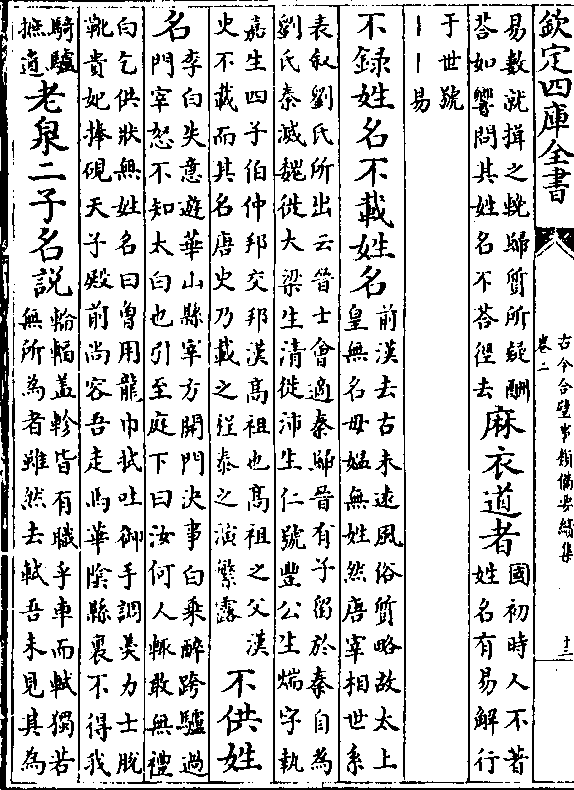 欽定四庫全書
古今合璧事類備要續集
卷二
十三
易數就揖之輓歸質所疑酬
荅如響問其姓名不荅徑去
麻衣道者
國初時人不著
姓名有易解行
于世號
｜｜易
不録姓名不載姓名
前漢去古未逺風俗質略故太上
皇無名母媼無姓然唐宰相世系
表叙劉氏所出云晉士會適秦歸晉有子留於秦自為
劉氏秦滅魏徙大梁生清徙沛生仁號豐公生煓字執
嘉生四子伯仲邦交邦漢髙祖也髙祖之父漢
史不載而其名唐史乃載之程泰之演繁露
不供姓
名
李白失意遊華山縣宰方開門決事白乗醉跨驢過
門宰怒不知太白也引至庭下曰汝何人輙敢無禮
白乞供狀無姓名曰曽用龍巾拭吐御手調羮力士脱
靴貴妃捧硯天子殿前尚容吾走馬華陰縣裏不得我
騎驢
摭遺
老泉二子名説
輪輻盖軫皆有職乎車而軾獨若
無所為者雖然去軾吾未見其為